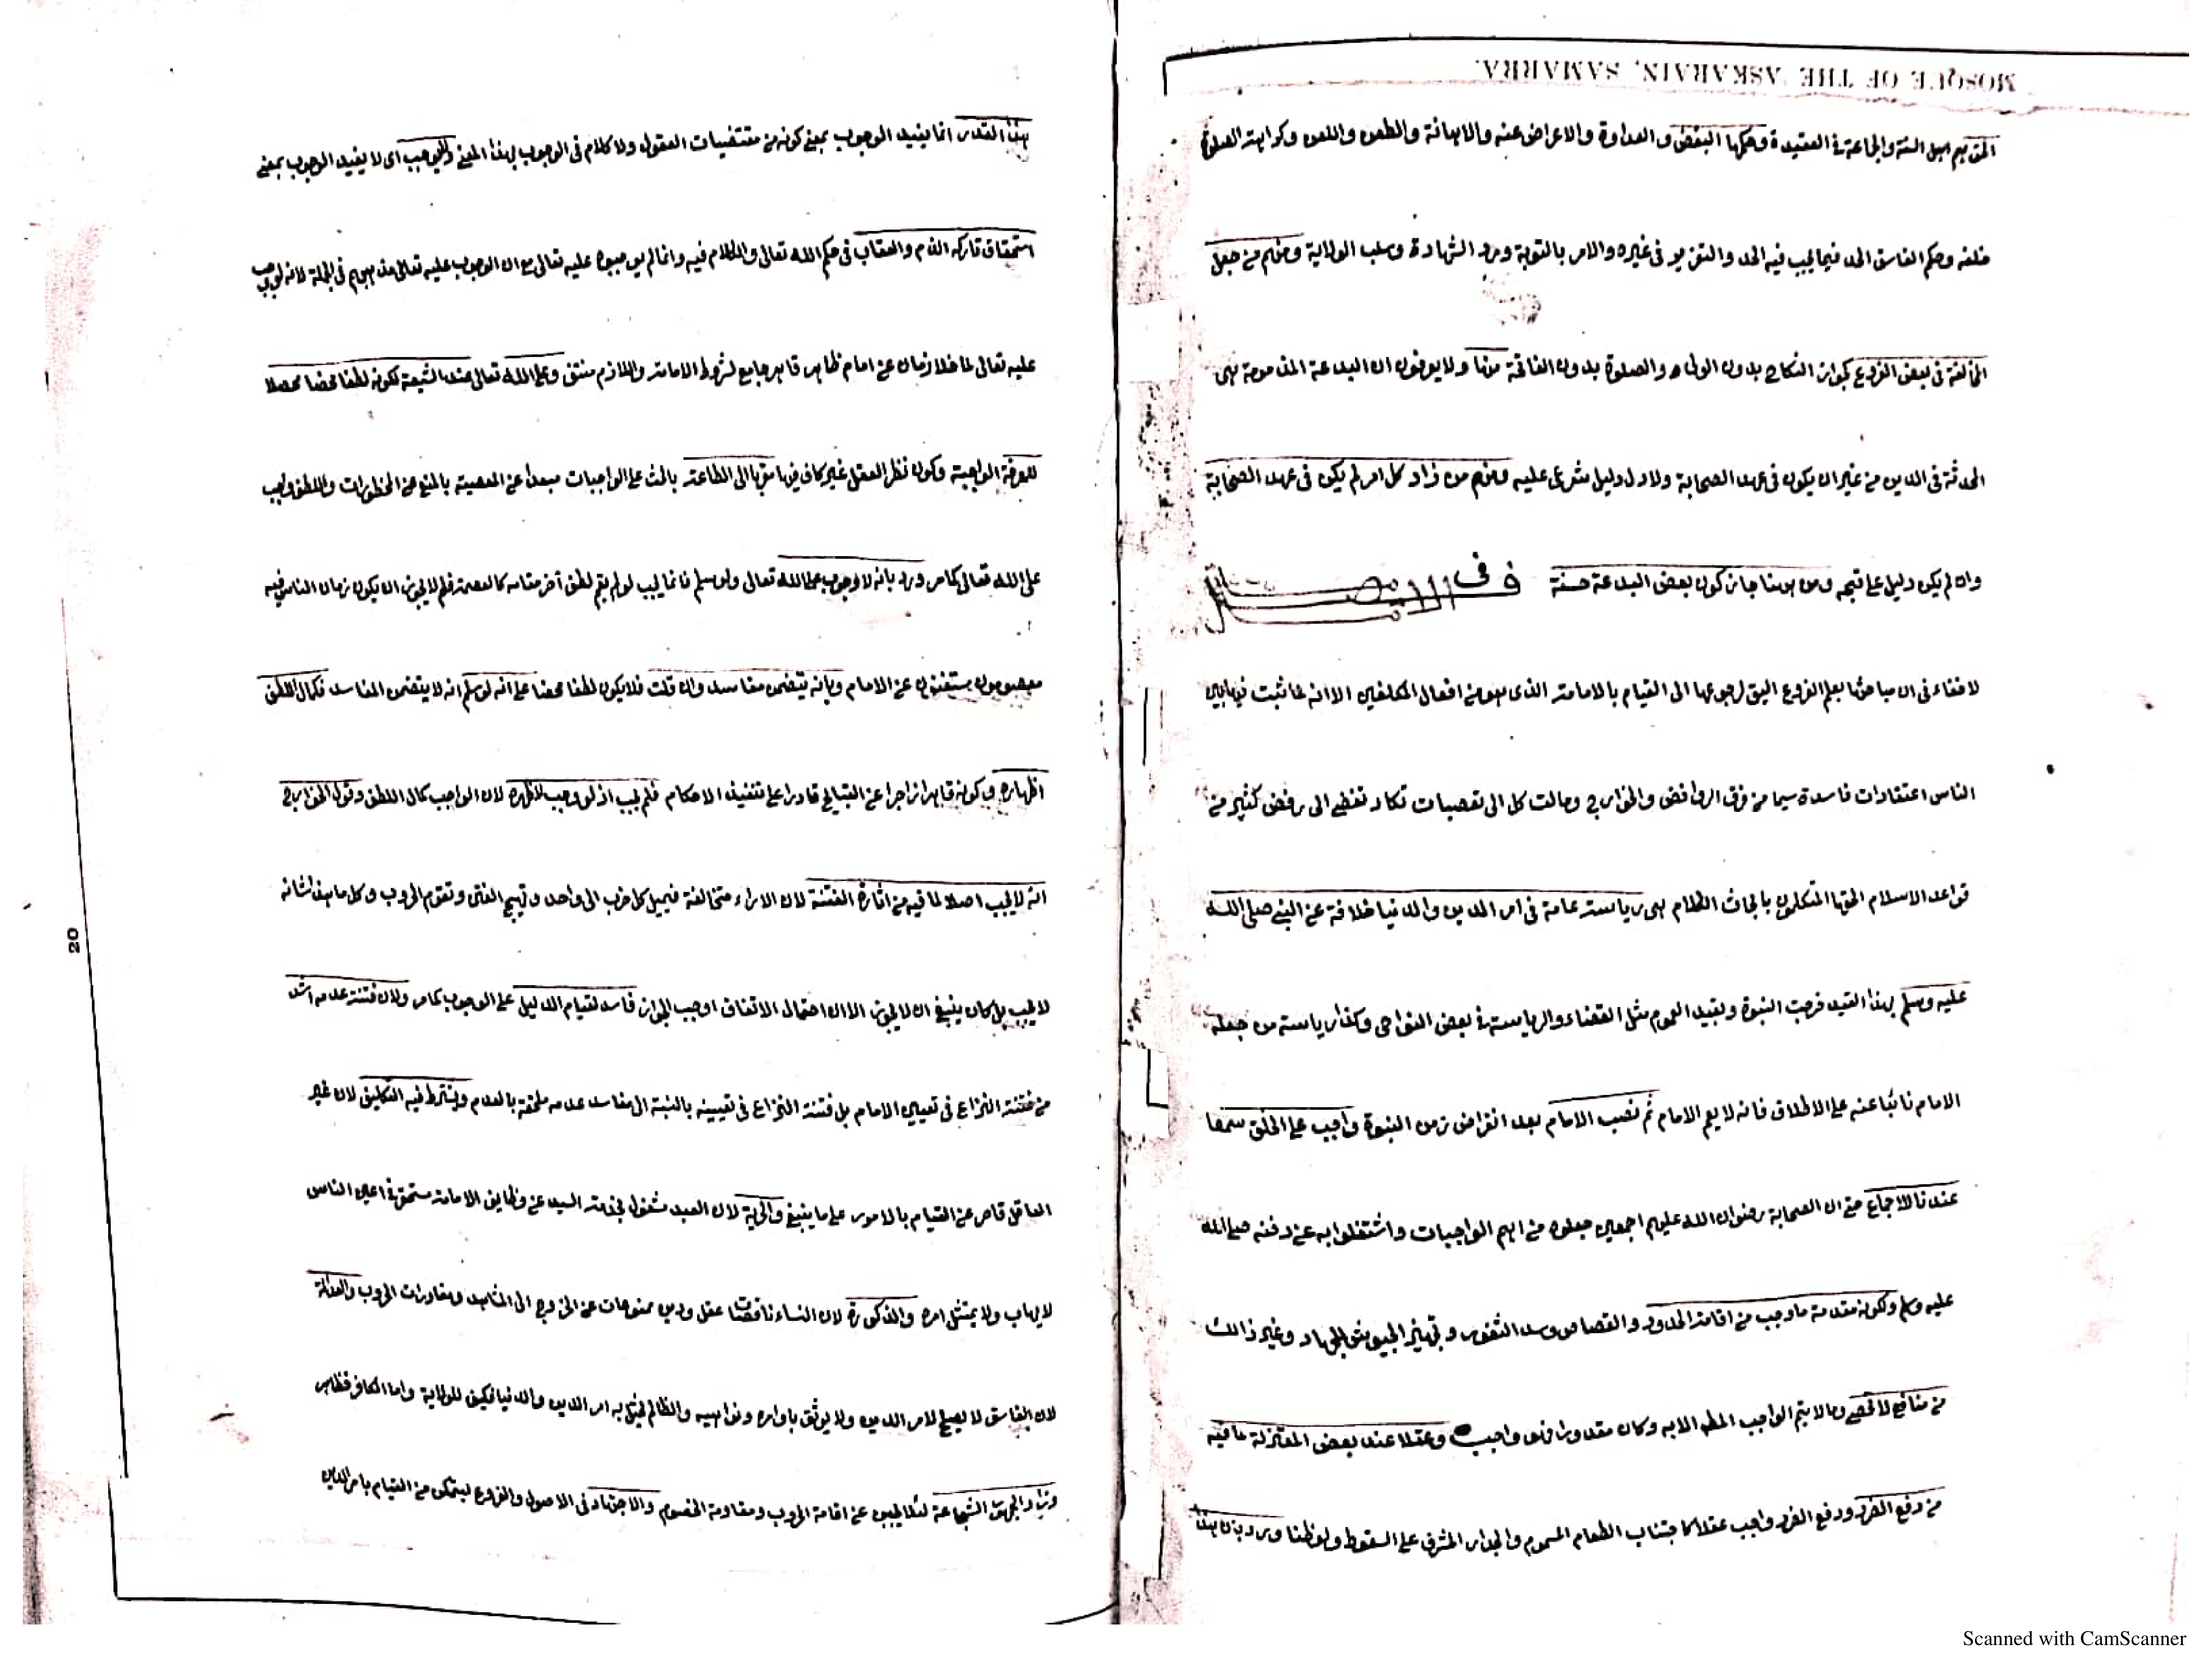 MOSQUE OF THE ASKARAIN, SAMARRA.
اهل السنة والجماعة فى العقيدة وحكمها البغض والعداوة والاعراض عنه والاهانة والطعن واللعن وكراهة الصلوة
خلفه وحكم الفاسق الحد فيما يجب فيه الحد والتعزير فى غيره والامر بالتوبة ورد الشهادة وسلب الولاية ومنهم من جعل
المخالفة فى بعض الفروع كجواز النكاح بدون الولى والصلوة بدون الفاتحة ولا يعرفون ان البدعة المذمومة هى
المحدثة فى الدين من غير ان يكون فى عهد الصحابة ولا دل دليل شرعى عليه ومنهم من زاد كل امر لم يكن فى عهد الصحابة
وان لم يكن دليل على قبحه ومن ههنا جاز كون بعض البدعة حسنة
لا خفاء فى ان مباحثها بعلم الفروع اليق لرجوعها الى القيام بالامامة الذى هو من افعال المكلفين الا انه لما ثبت فيما بين
الناس اعتقادات فاسدة سيما من فرق الروافض والخوارج ومالت كل الى تعصبات تكاد تفضى الى رفض كثير من
قواعد الاسلام الحقها المتكلمون بابحاث الكلام هى رياسة عامة فى امر الدين والدنيا خلافة عن النبى صلى الله
عليه وسلم بهذا القيد خرجت النبوة وبقيد العموم مثل القضاء والرياسة فى بعض النواحى وكذا رياسة من جعله
الامام نائبا عنه على الاطلاق فانه لا يعم الامام ثم نصب الامام بعد انقراض زمن النبوة واجب على الخلق سمعا
عندنا لاجماع حتى ان الصحابة رضوان الله عليهم اجمعين جعلوه من اهم الواجبات واشتغلوا به عن دفنه صلى الله
عليه وسلم ولكونه مقدمة ما وجب من اقامة الحدود والقصاص وسد الثغور وتجهيز الجيوش للجهاد وغير ذالك
من منافع لا تحصى وما لا يتم الواجب المطلق الا به وكان مقدورا فهو واجب وعقلا عند بعض المعتزلة لما فيه
من دفع الضرر ودفع الضرر واجب عقلا كاجتناب الطعام المسموم والجدار المشرف على السقوط ولو ظنا ورد بان هذا
هذا القدر انما يفيد الوجوب بمعنى كونه من مقتضيات العقول ولا كلام فى الوجوب بهذا المعنى اى لا يفيد الوجوب بمعنى
استحقاق تاركه الذم والعقاب فى حكم الله تعالى والكلام فيه وانما لم عليه تعالى مع ان الوجوب عليه تعالى مذهبهم فى الجملة لانه لو وجب
عليه تعالى لما خلا زمان عن امام ظاهر قاهر جامع لشروط الامامة واللازم منتف وعلى الله تعالى عند الشيعة لكونه لطفا محضا محصلا
للمعرفة الواجبة وكون نظر العقل غير كاف فيها مقربا الى الطاعة بالحث على الواجبات مبعدا عن المعصية بالمنع عن المحظورات واللطف واجب
على الله تعالى كما مر ورد بانه لا وجوب على الله تعالى ولو سلم فانما يجب لو لم يقم لطف آخر مقامه كالعصمة فلم لا يجوز ان يكون زمان الناس فيه
معصومون مستغنون عن الامام وبانه يتضمن مفاسد وان قلت فلا يكون لطفا محضا على انه لو سلم انه لا يتضمن المفاسد فكمال اللطف
اظهاره وكونه قاهرا زاجرا عن القبائح قادرا على تنفيذ الاحكام فلم يجب اذ لو وجب لاظهره لان الواجب كمال اللطف وقول الخوارج
انه لا يجب اصلا لما فيه من اثارة الفتنة لان الاراء متخالفة فيميل كل حزب الى واحد وتهيج الفتن وتقوم الحروب وكل ما هذا شانه
لا يجب بل كان ينبغى ان لا يجوز الا ان احتمال الاتفاق اوجب الجواز فاسد لقيام الدليل على الوجوب كما مر ولان فتنة عدمه اشد
من فتنة النزاع فى تعيين الامام بل فتنة النزاع فى تعيينه بالنسبة الى مفاسد عدمه ملحقة بالعدم ويشترط فيه التكليف لان غير
العاقل قاصر عن القيام بالامور على ما ينبغى والحرية لان العبد مشغول بخدمة السيد عن وظايف الامامة مستحقر فى اعين الناس
لا يهاب ولا يمتثل امره والذكورة لان النساء ناقصات عقل ودين ممنوعات عن الخروج الى المشاهد ومعارك الحروب والعدالة
لان الفاسق لا يصلح لامر الدين ولا يوثق باوامره ونواهيه والظالم يختل به امر الدين والدنيا فكيف للولاية واما الكافر فظاهر
وزاد الجمهور الشجاعة لئلا يجبن عن اقامة الحروب ومقاومة الخصوم والاجتهاد فى الاصول والفروع ليتمكن من القيام بامر الدين
20
Scanned with CamScanner